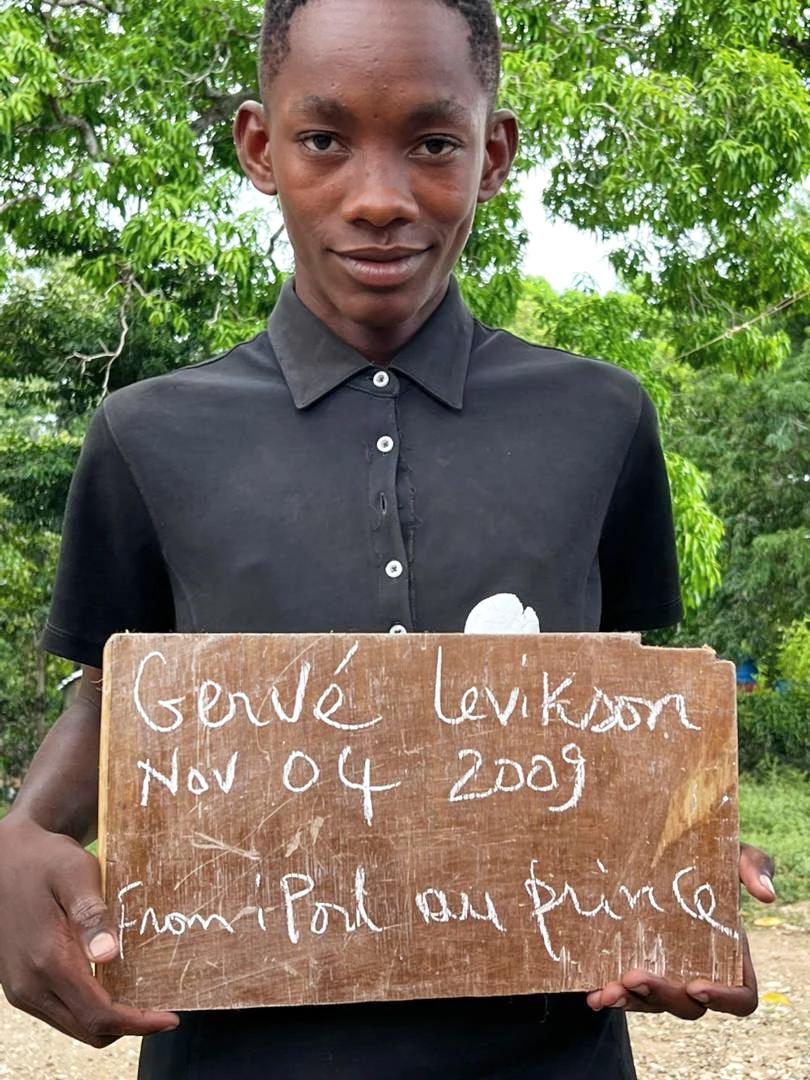 Gervé Levikson
Nov 04 2009
From : Port au prince